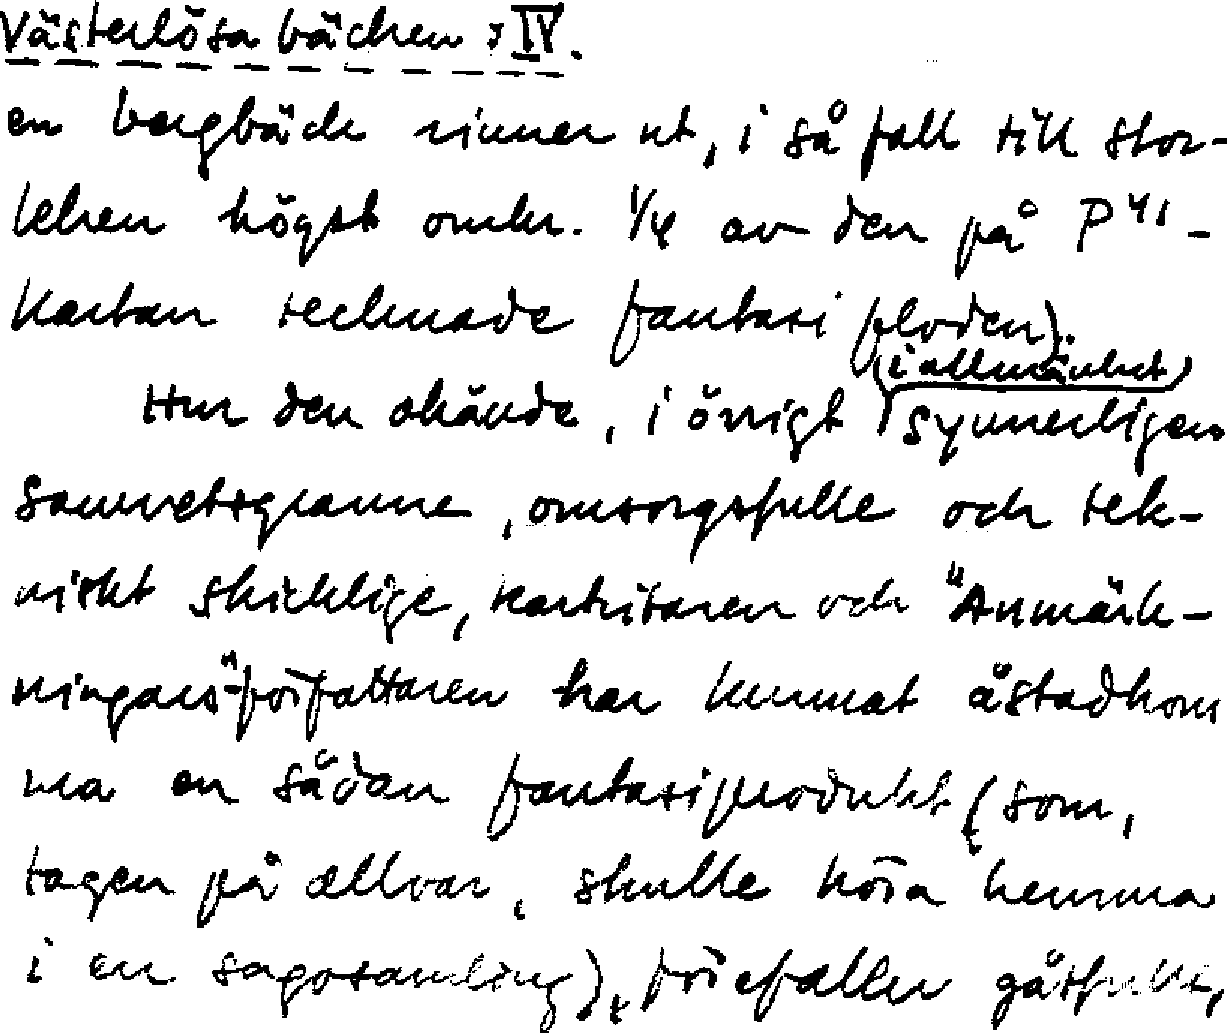 Västerlösa bäcken, IV.
en bergbäck rinner ut, i så fall till stor-
leken högst omkr. 1/4 av den på P41-
kartan tecknade fantasifloden).
(i allmänhet)
Hur den okände, i övrigt synnerligen
samvetsgranne, omsorgsfulle och tek-
niskt skicklige, kartritaren och "Anmärk-
ningars"-författaren har kunnat åstadkom
ma en sådan fantasiprodukt (som,
tagen på allvar, skulle höra hemma
i en sagosamling), förefaller gåtfullt,